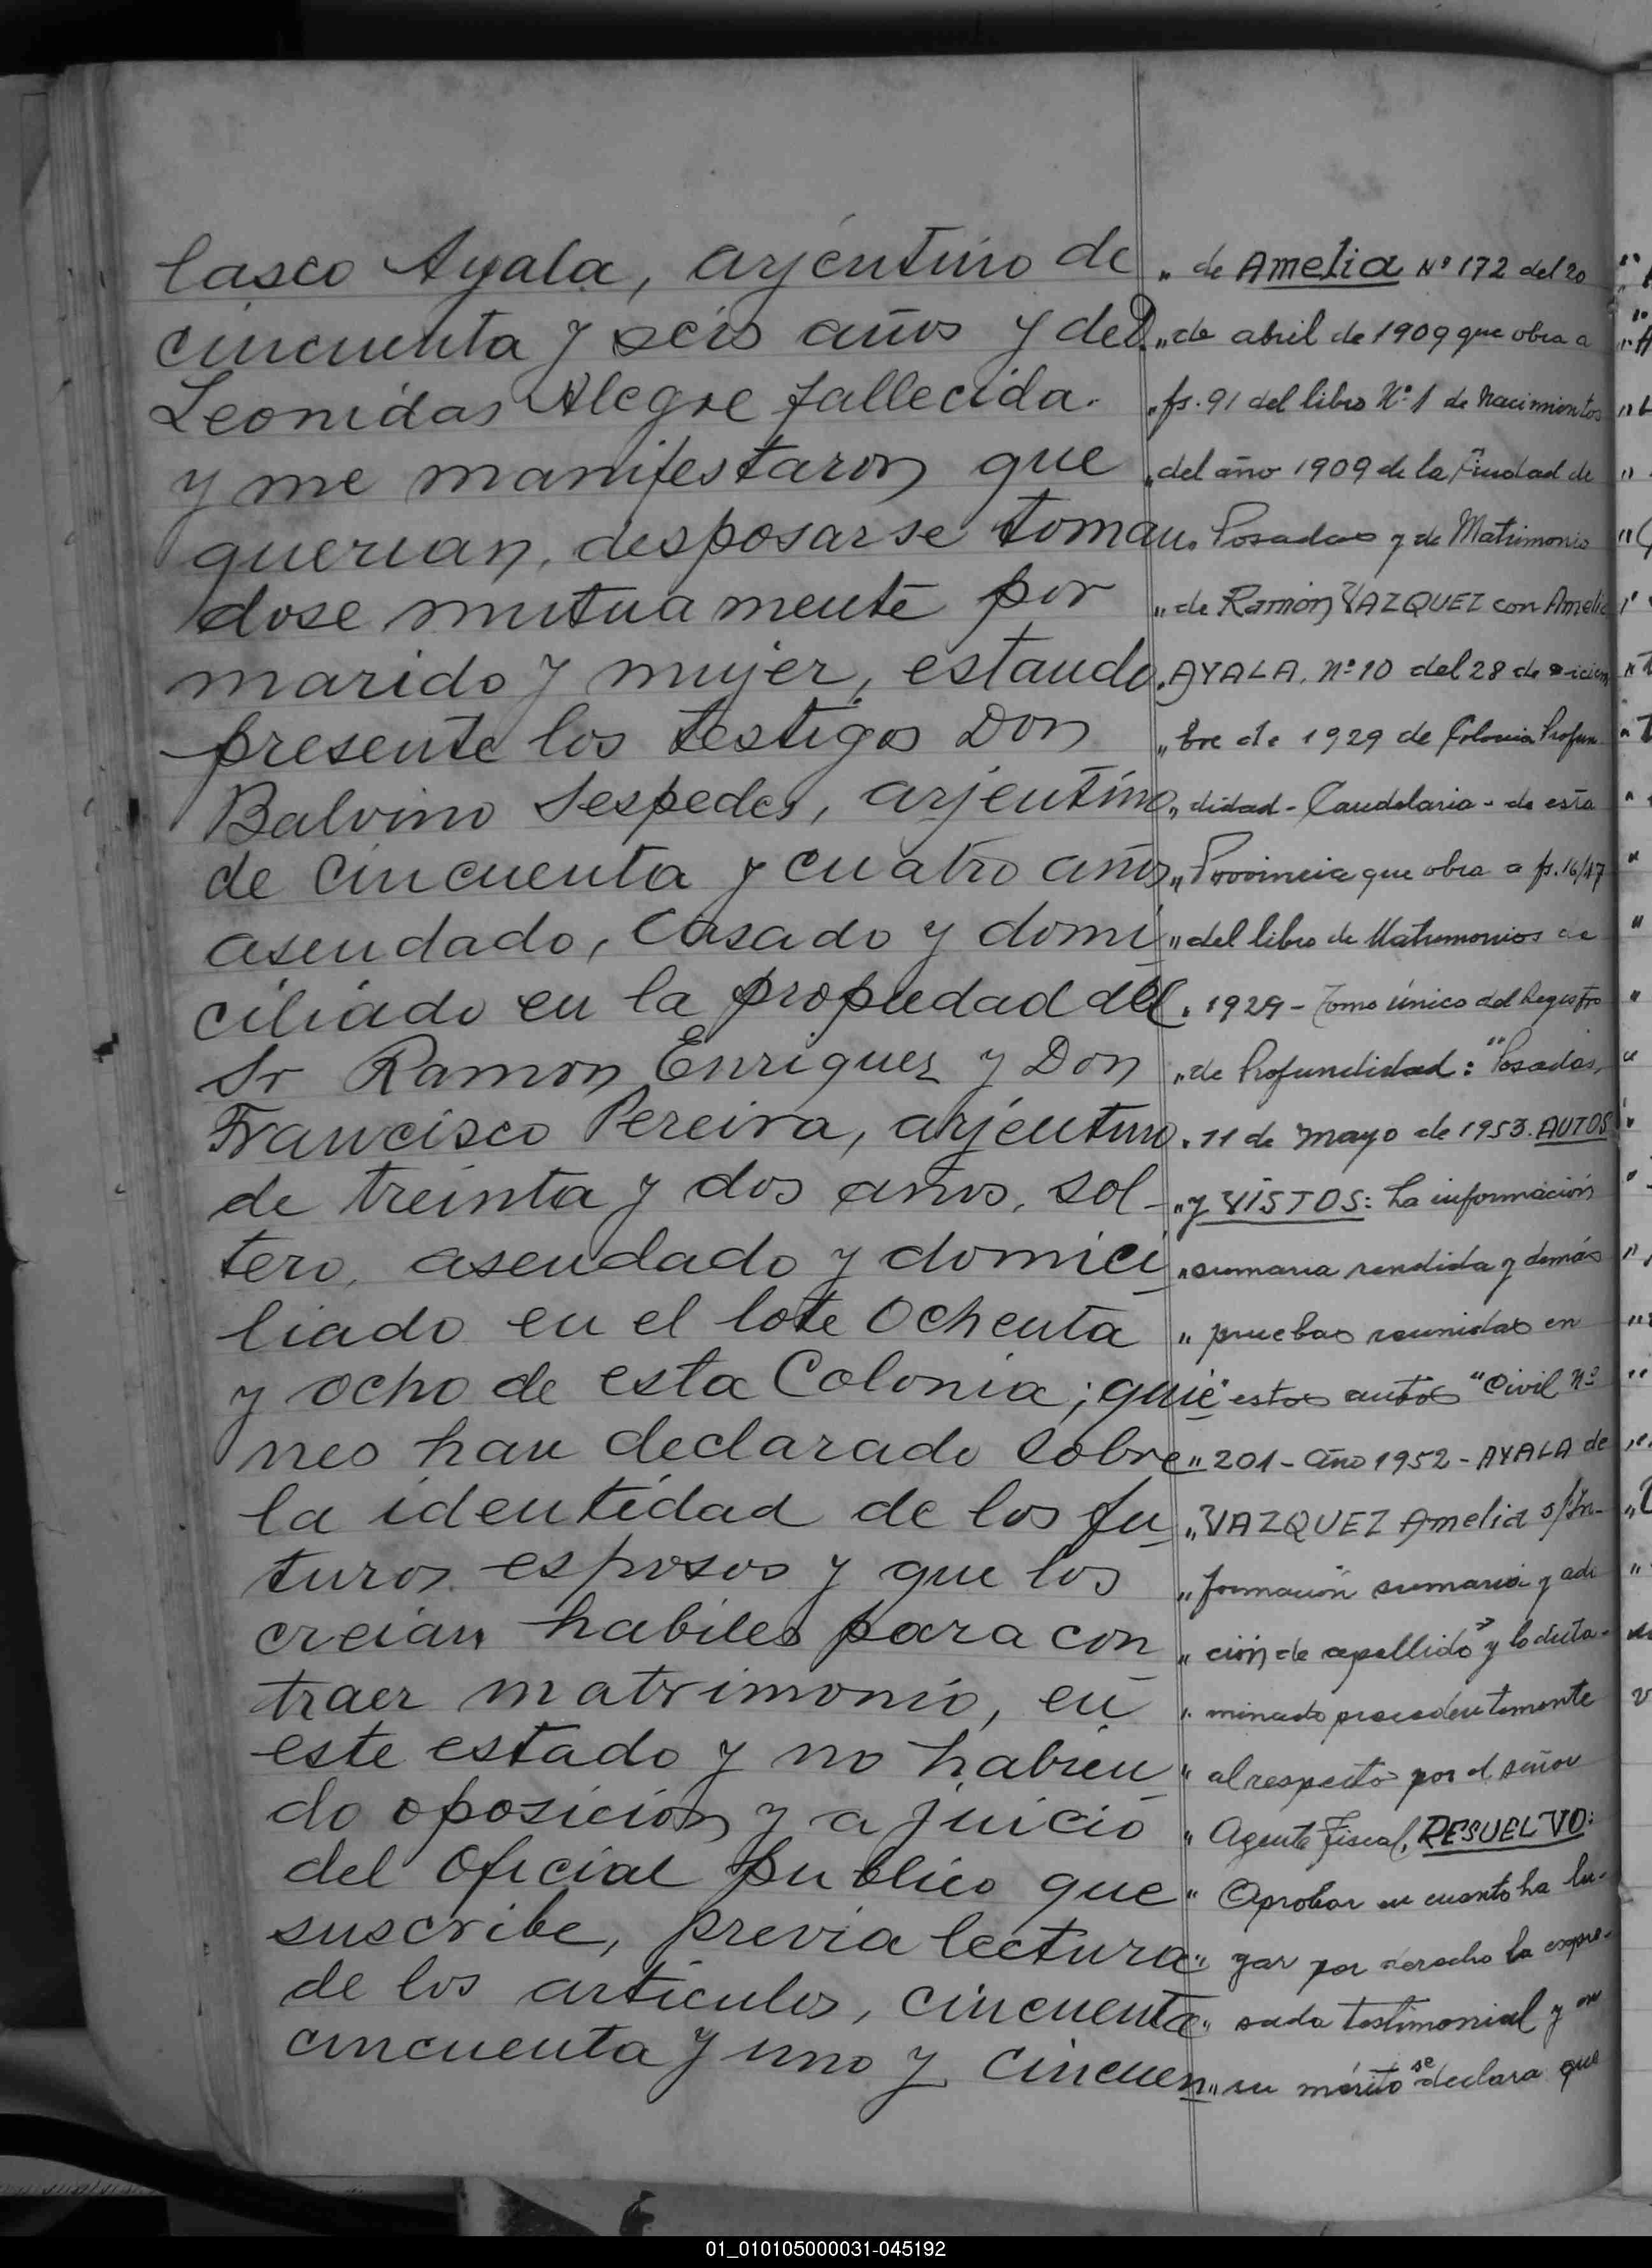 lasco Ayala, arjentino de
cincuenta y seis años y de D.
Leonidas Alegre fallecida.
y me manifestaron que
querian, desposarse toman
dose mutuamente por
marido y mujer, estando
presente los testigos Don
Balvino Sespedes, arjentino
de cincuenta y cuatro años,
asendado, casado y domi
ciliado en la propiedad del
Sr Ramon Enriquez y Don
Francisco Pereira, arjentino
de treinta y dos años, sol-
tero, asendado y domici
liado en el lote ochenta
y ocho de esta Colonia; quie
nes han declarado sobre
la identidad de los fu
turos esposos y que los
creian habiles para con
traer matrimonio, en
este estado y no habien
do oposicion y a juicio
del oficial publico que
suscribe, previa lectura
de los articulos, cincuenta
cincuenta y uno y cincuen
" de Amelia Nº 172 del 20
" de abril de 1909 que obra a
" fs. 91 del libro Nº 1 de Nacimientos
" del año 1909 de la Ciudad de
" Posadas y de Matrimonio
" de Ramón VAZQUEZ con Amelia
" AYALA, Nº 10 del 28 de diciem
" bre de 1929 de Colonia Profun
" didad - Candelaria - de esta
" Provincia que obra a fs. 16/17
" del libro de Matrimonios de
" 1929 - Tomo único del Registro
" de Profundidad: "Posadas,
" 11 de Mayo de 1953. AUTOS
" y VISTOS: La información
" sumaria rendida y demás
" pruebas reunidas en
" estos autos "Civil Nº
" 201 - Año 1952 - AYALA de
" VAZQUEZ Amelia s/In-
" formación sumaria y adi
" ción de apellido" y lo dicta-
" minado precedentemente
" al respecto por el señor
" Agente Fiscal, RESUELVO:
" Aprobar en cuanto ha lu-
" gar por derecho la expre-
" sada testimonial y en
" su mérito se declara que
01_010105000031-045192